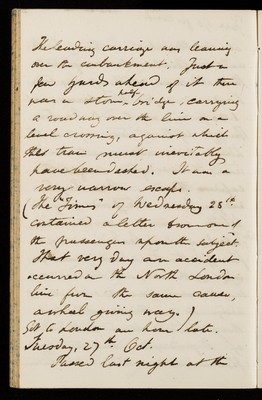 The leading carriage was leaning
over the embankment. Just a
few yards ahead of it there
was a stone bridge, carrying
a roadway over the line on a
level crossing, against which
the train must inevitably
have been dashed. It was a
very narrow escape.
(The "Times" of Wednesday 28th
contained a letter from one of
the passengers upon the subject.
That very day an accident
occurred on the North London
line from the same cause,
a wheel giving way.)
Got to London an hour late.
Tuesday, 27th Oct.
Passed last night at the